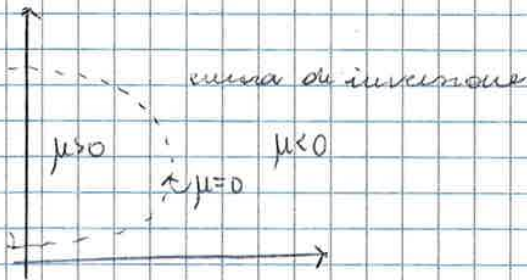 curva di inversione
μ>0
μ<0
μ=0